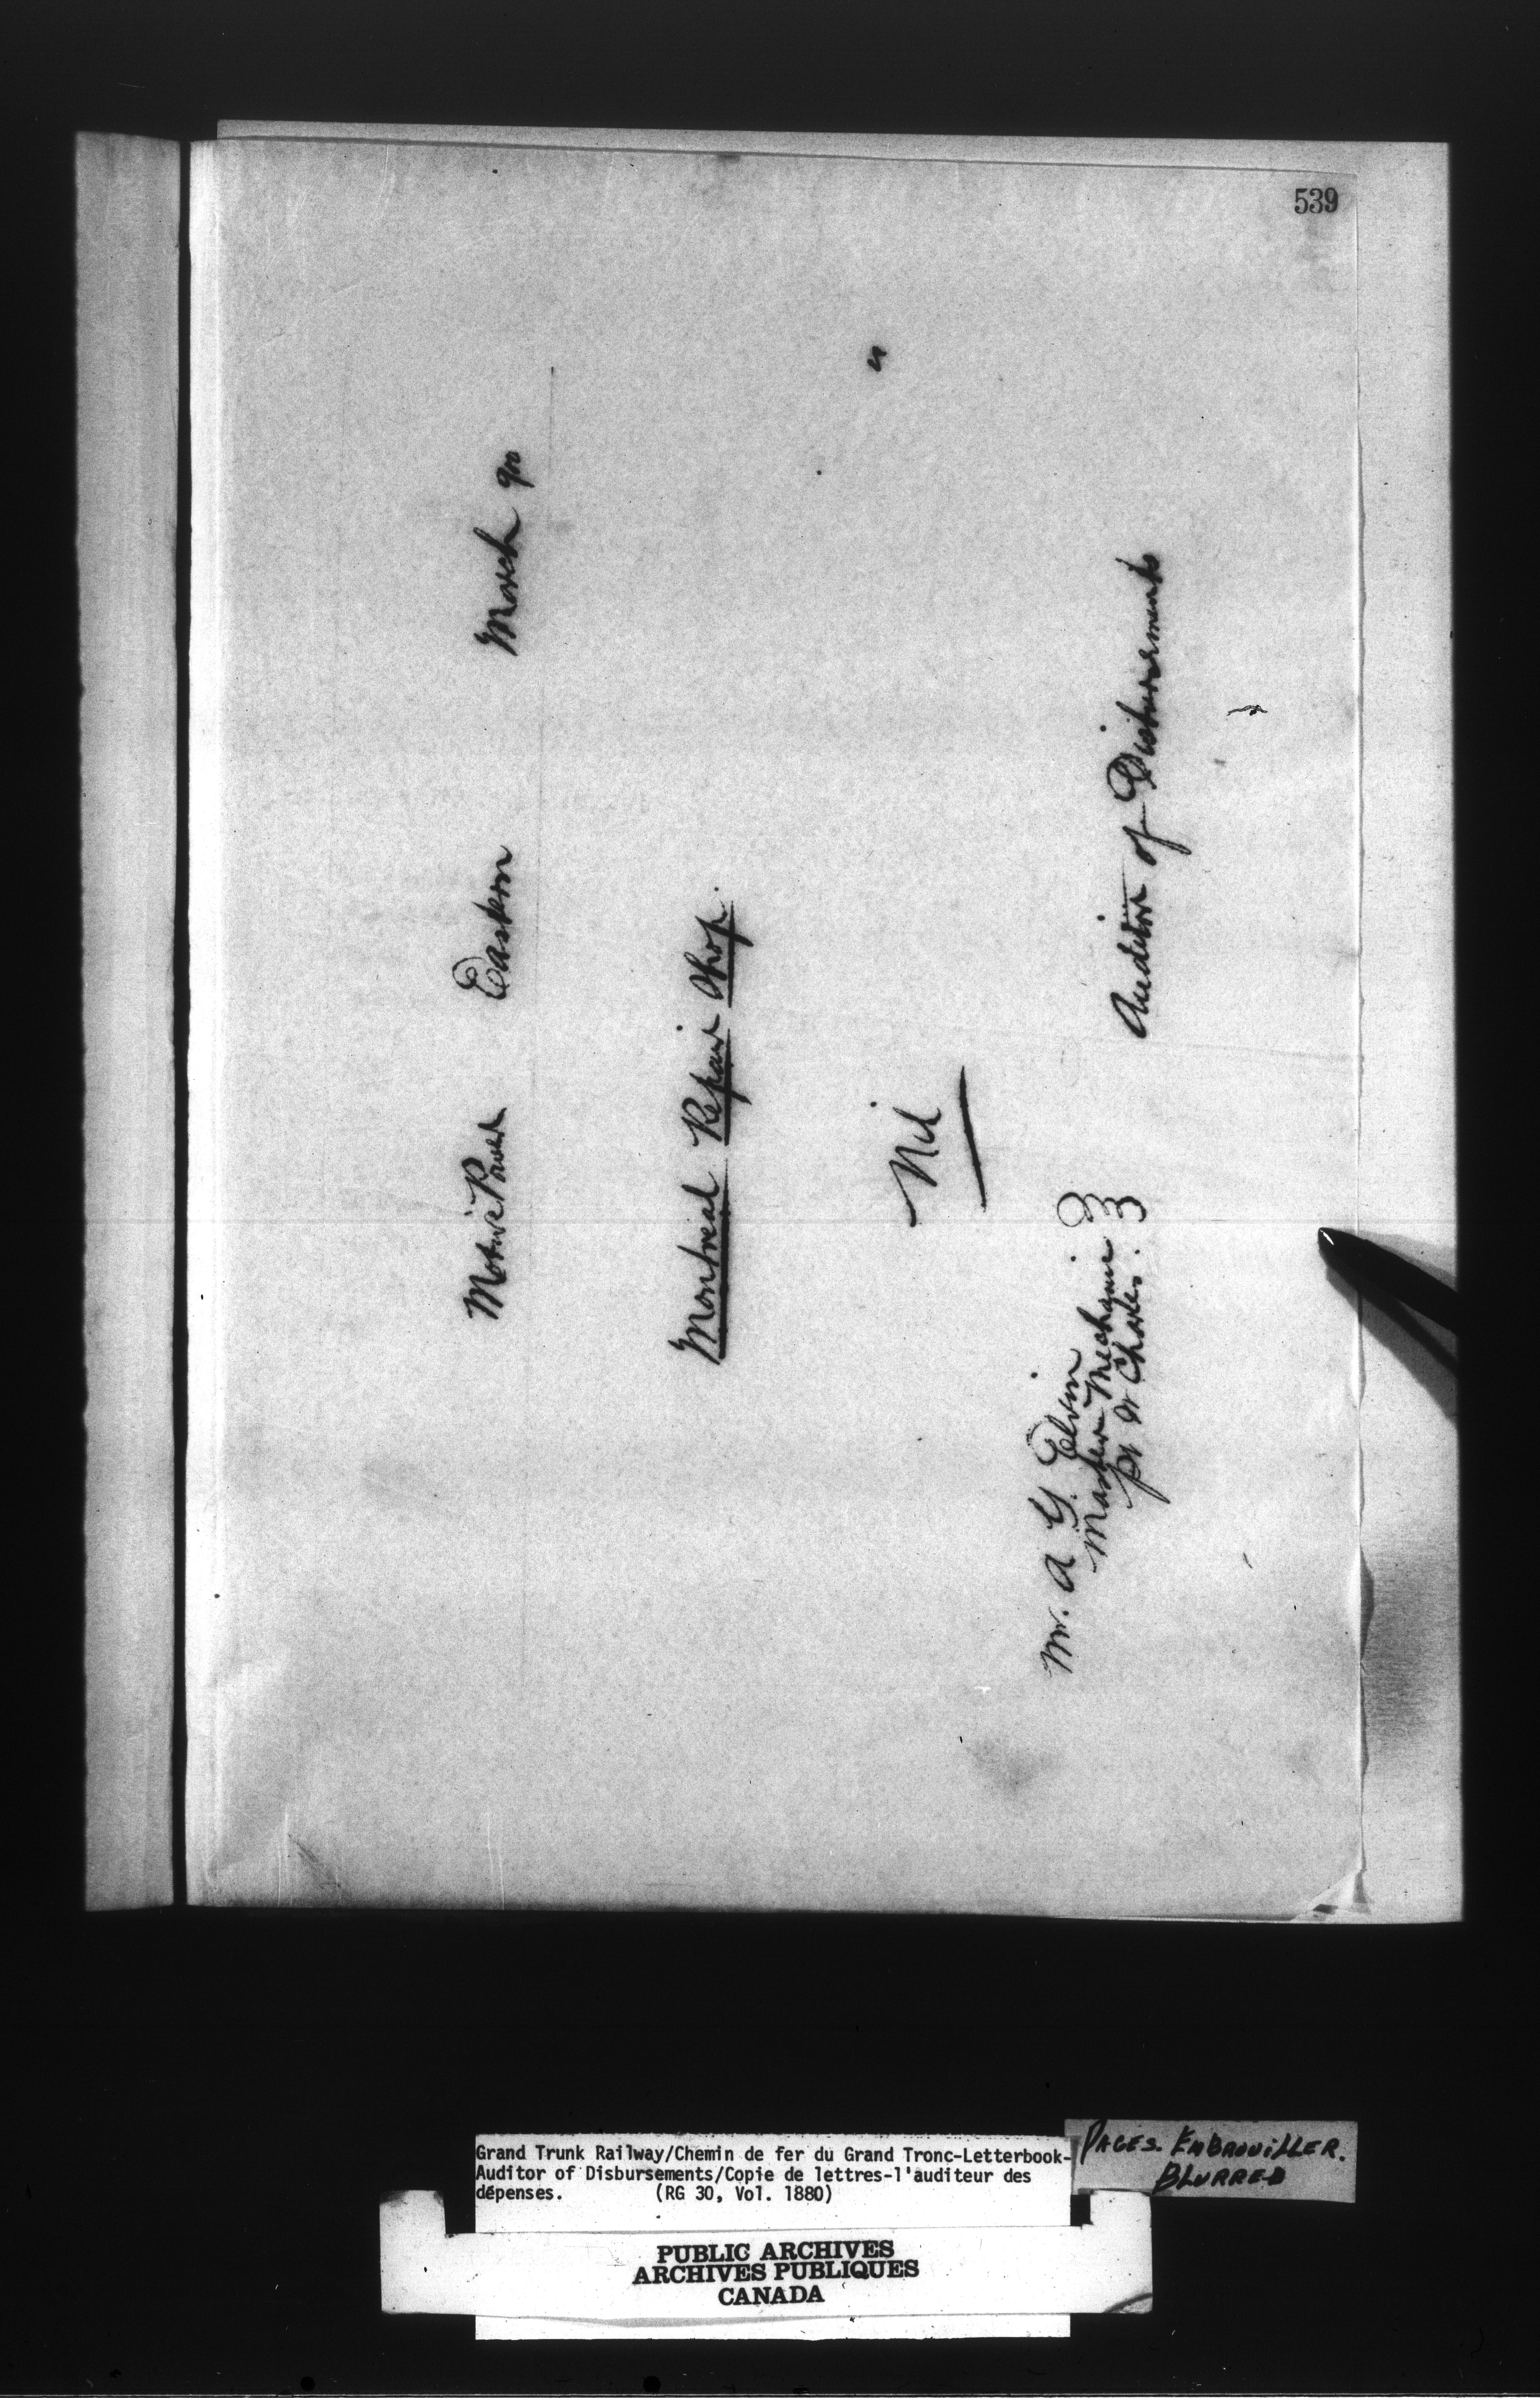 539
Motive Power Eastern March 900
Montreal Repair Shop.
"
Nil
Mr. A Y. Elvin
Master Mechanic
Pt St Charles.
Auditor of Disbursments
Grand Trunk Railway/Chemin de fer du Grand Tronc-Letterbook-
Auditor of Disbursements/Copie de lettres-l'auditeur des
dépenses. (RG 30, Vol. 1880)
PAGES. EMBROUILLER.
BLURRED
PUBLIC ARCHIVES
ARCHIVES PUBLIQUES
CANADA